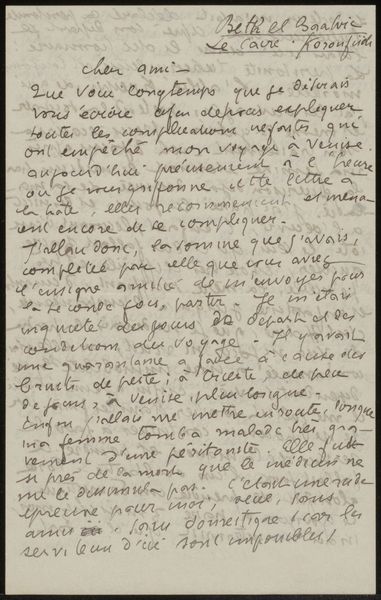 Le Caire.
Cher ami —
Que voici longtemps que je désirais
vous écrire afin de vous expliquer
toutes les complications néfastes qui
ont empêché mon voyage à Venise.
aujourd'hui précisément à l'heure
où je vous griffonne cette lettre à
la hâte, elles recommencent et mena-
cent encore de se compliquer.
J'allai donc, la somme que j'avais,
complétée par celle que vous avez
l'insigne amitié de m'envoyer pour
la seconde fois, partir. Je m'étais
inquiété des jours de départ et des
conditions du voyage. Il y avait
une quarantaine à faire à cause des
bruits de peste; à Trieste de peu
de jours, à Venise plus longue.
Enfin j'allais me mettre en route, lorsque
ma femme tomba malade très gra-
vement d'une péritonite. Elle fut
si près de la mort que le médecin ne
me le dissimula pas. C'était une rude
épreuve pour moi, seul, sans
amis. sans domestique (car les
serviteurs d'ici sont impossibles)